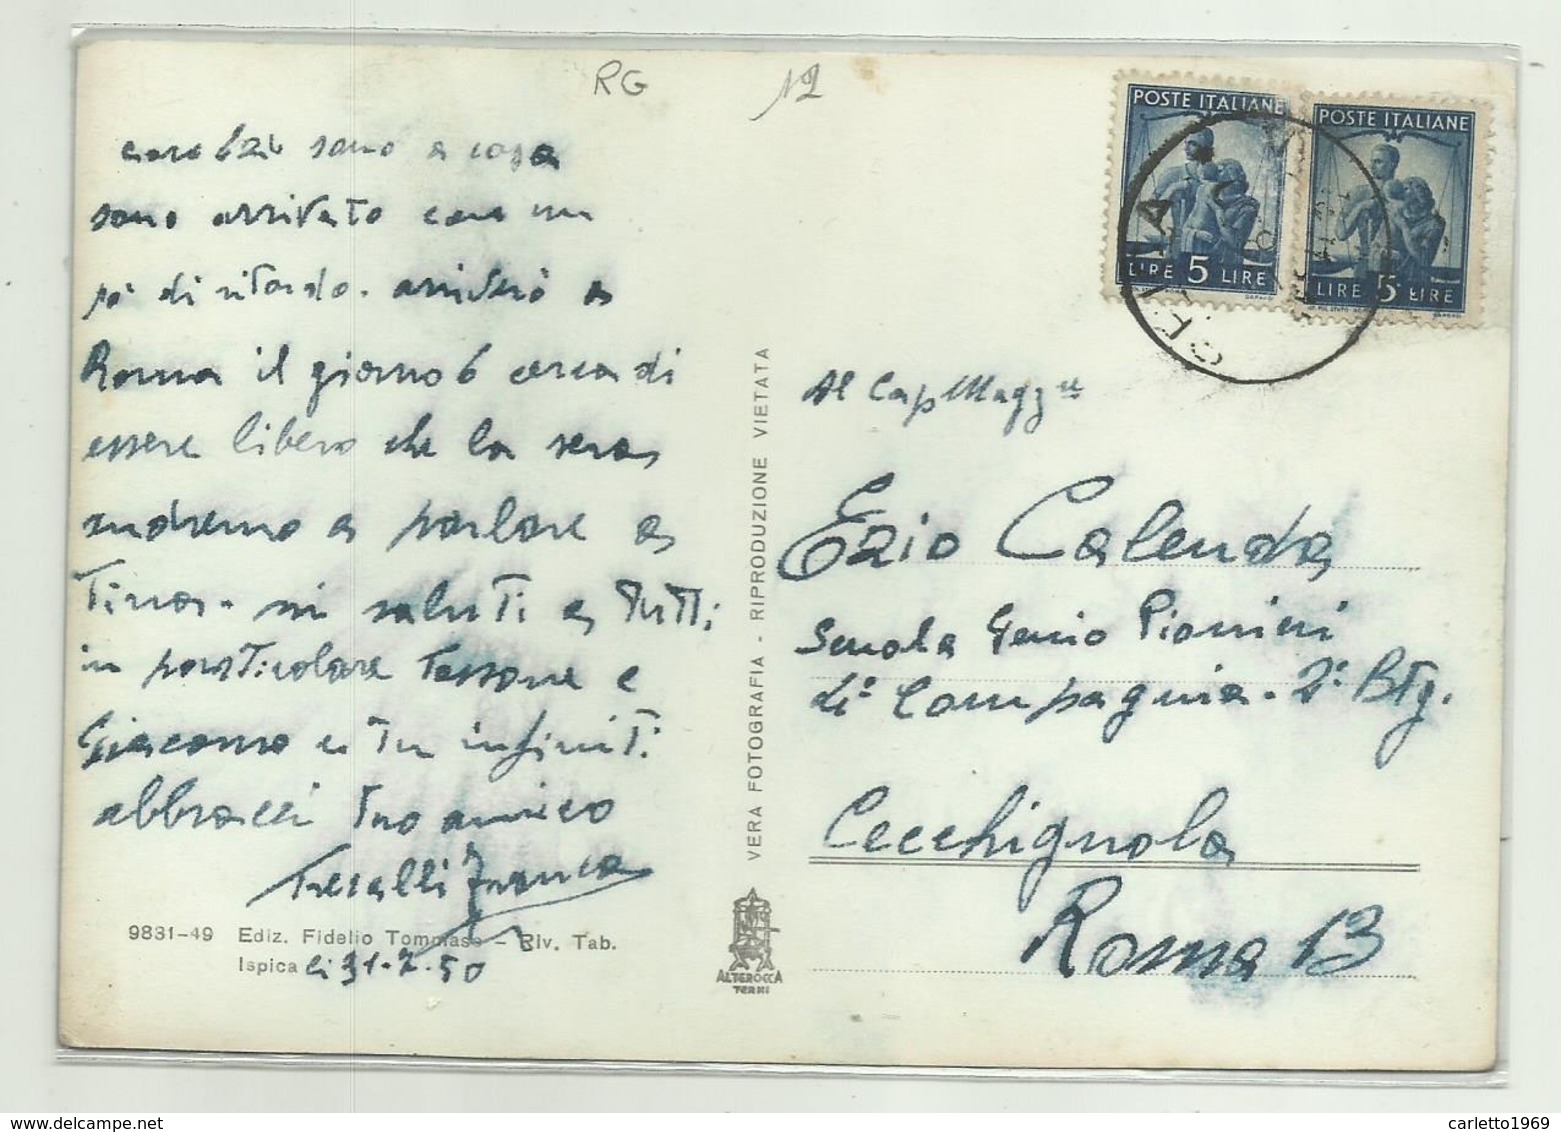 RG
12
caro Ezio sono a casa
sono arrivato con un
po' di ritardo. arriverò a
Roma il giorno 6 cerca di
essere libero che la sera
andremo a parlare a
Tina. mi saluti a tutti
in particolare Tassone e
Giacomo a tu infiniti
abbracci tuo amico
Franco
9831-49 Ediz. Fidelio Tommaso - Riv. Tab.
Ispica li 31-7-50
VERA FOTOGRAFIA - RIPRODUZIONE VIETATA
ALTEROCCA
TERNI
POSTE ITALIANE
LIRE 5 LIRE
POSTE ITALIANE
LIRE 5 LIRE
Al Cap Magg re
Ezio Calenda
Scuola Genio Pionieri
4ª Compagnia. 2º Btg.
Cecchignola
Roma 13
delcampe.net
carletto1969